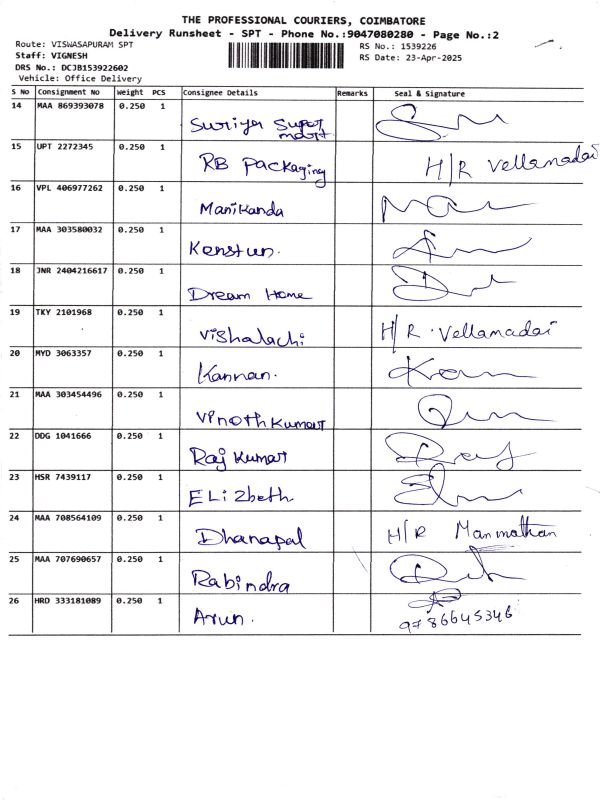 THE PROFESSIONAL COURIERS, COIMBATORE
Delivery Runsheet - SPT - Phone No.:9047080280 - Page No.:2
Route: VISWASAPURAM SPT
RS No.: 1539226
Staff: VIGNESH
RS Date: 23-Apr-2025
DRS No.: DCJB153922602
Vehicle: Office Delivery
S No Consignment No Weight PCS Consignee Details Remarks Seal & Signature
14 MAA 869393078 0.250 1
Suriya Super
mart
15 UPT 2272345 0.250 1
RB Packaging H/R Vellamadai
16 VPL 406977262 0.250 1
Manikanda
17 MAA 303580032 0.250 1
Kenstun.
18 JNR 2404216617 0.250 1
Dream Home
19 TKY 2101968 0.250 1
Vishalachi H/R. Vellamadai
20 MYD 3063357 0.250 1
Kannan.
21 MAA 303454496 0.250 1
Vinoth Kumar
22 DDG 1041666 0.250 1
Raj Kumar
23 HSR 7439117 0.250 1
ELizbeth.
24 MAA 708564109 0.250 1
Dhanapal H/R Manmathan
25 MAA 707690657 0.250 1
Rabindra
26 HRD 333181089 0.250 1
Arun. 9786645346